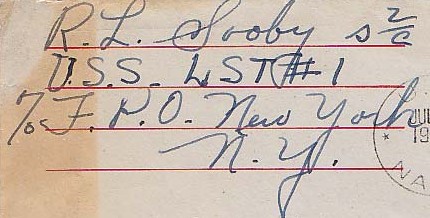 R. L. Sooby S 2/c
U.S.S. LST #1
% F. P. O. New York
N. Y.
JUL
19
NA